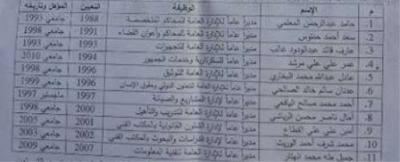 م الإسم الوظيفة التعيين المؤهل وتاريخه
1 حامد عبدالرحمن المعلمي مديراً عاماً للإدارة العامة للمحاكم المتخصصة 1988 جامعي 1993
2 سعد أحمد مديراً عاماً للإدارة العامة للمحاكم وأعوان القضاء 1991 جامعي 1998
3 عارف قائد عبدالودود غالب مديراً عاماً للإدارة العامة للتجهيزات جامعي
4 عمر علي علي مرشد مديراً عاماً للسكرتارية وخدمات الجمهور 1994 جامعي 2010
5 عادل عبدالله محمد البخاري مديراً عاماً للإدارة العامة للتوثيق 1996 جامعي 1994
6 عدنان سالم خالد الصالحي مديراً عاماً للإدارة العامة للتعاون الدولي وحقوق الإنسان 1996 جامعي
7 أحمد محمد صالح اليافعي مديراً عاماً للإدارة العامة المشاريع والصيانة 1999 ماجستير 1997
8 أمال ناصر محسن مديراً عاماً للإدارة العامة للتدريب والتأهيل 2000 جامعي 1998
9 أمين علي علي مديراً عاماً للإدارة العامة الشئون القانونية بالمكتب الفني 2002 جامعي
10 أحمد محمد شرف أحمد مديراً عاماً للإدارة العامة للدراسات والبحوث والمكتب الفني 2007 جامعي 2005
جميل طه محمد مديراً عاماً للإدارة العامة لتقنية المعلومات 2009 جامعي